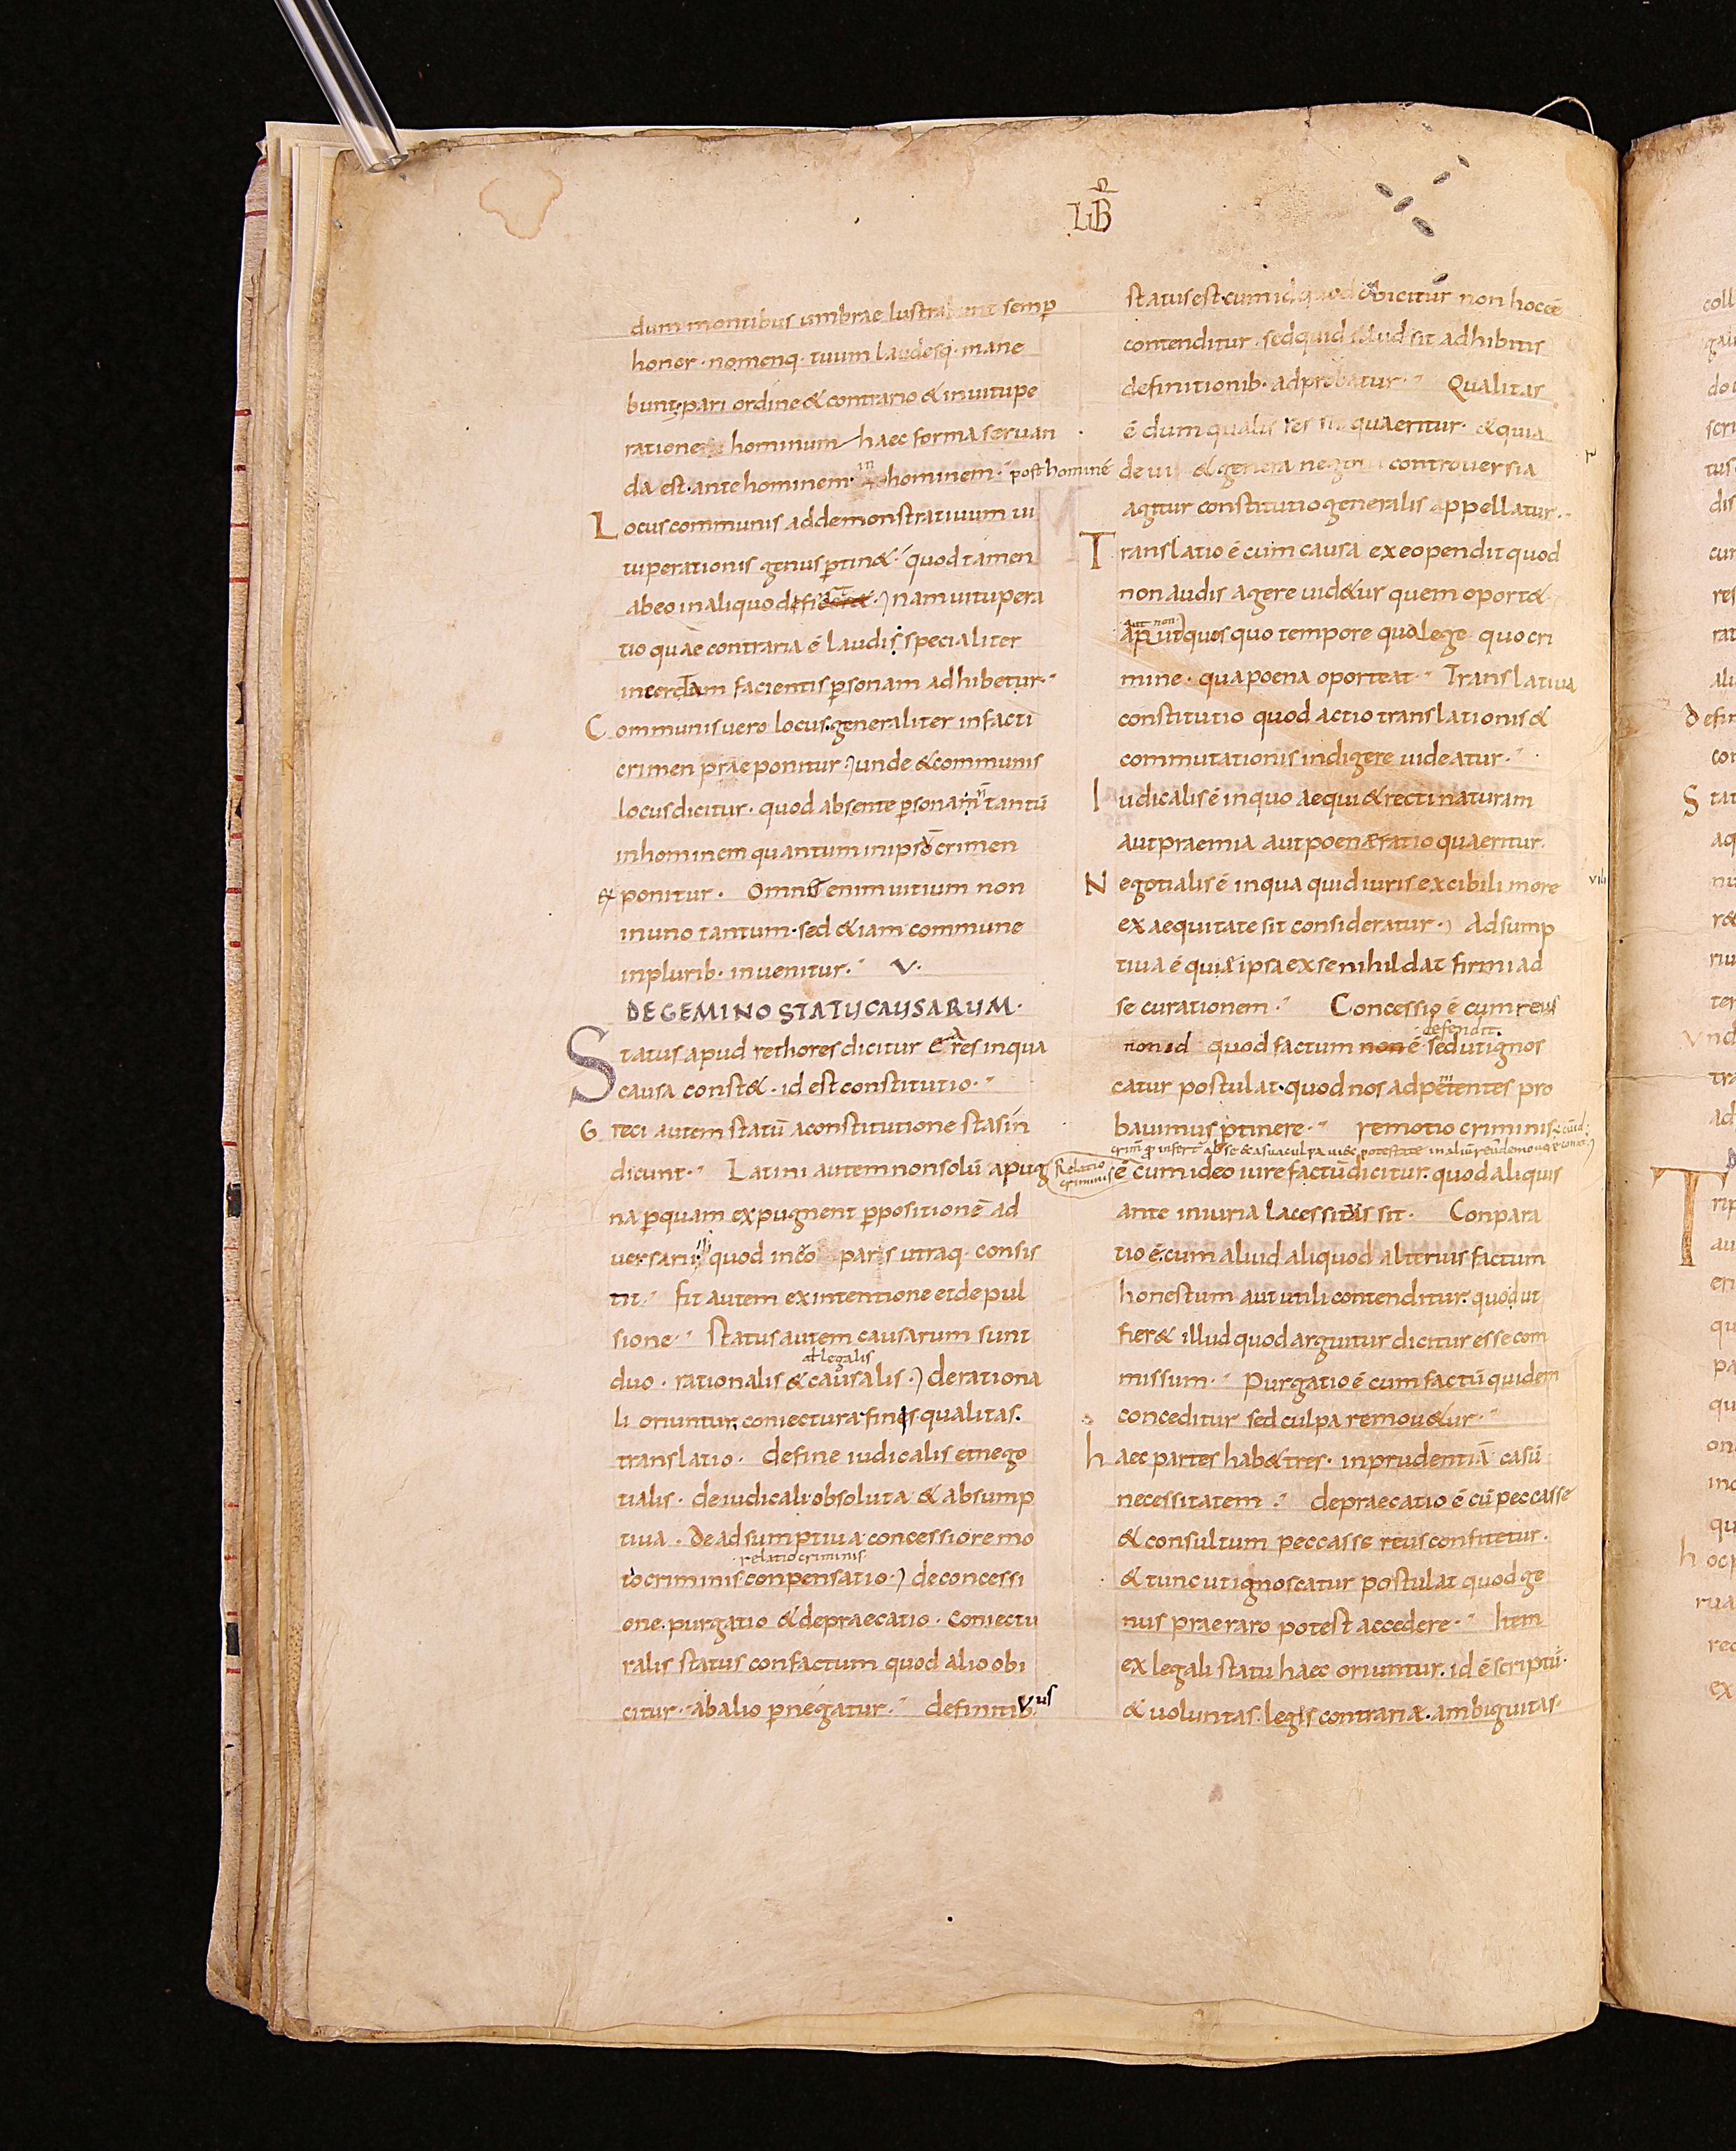 LIB
dum montibus umbrae lustrabunt semp
honor · nomenq· tuum laudesq· mane
bunt; pari ordine & contrario & inuitupe
ratione hominum haec forma seruan
da est · ante hominem · in hominem · post hominē
Locus communis ad demonstratiuum ui
tuperationis genus ptin& · quod tamen
ab eo in aliquo nam uitupera
tio quae contraria ē laudis specialiter
in certam facientis psonam adhibetur ·
Communis uero locus generaliter in facti
crimen praeponitur · unde & communis
locus dicitur · quod absente psona ñ tantū
in hominem quantum in ipso crimen
exponitur · Omne enim uitium non
in uno tantum · sed &iam commune
in plurib· inuenitur · V ·
DE GEMINO STATU CAUSARUM ·
Status apud rethores dicitur ea res in qua
causa const& · id est constitutio ·
Greci autem statū a constitutione stasin
dicunt · Latini autem non solū a pug
na p quam expugnent ppositionē ad
uersarii quod in eo pars utraq· consis
tit · fit autem ex intentione et depul
sione · Status autem causarum sunt
al legalis
duo · rationalis & causalis · de rationa
li oriuntur coniectura finis qualitas ·
translatio · de fine iudicalis et nego
tialis · de iudicali obsoluta & absump
tiua · De adsumptiua concessio remo
relatio criminis
tio criminis conpensatio · de concessi
one · purgatio & depraecatio · Coniectu
ralis status con factum quod alio obi
citur · ab alio pnegatur · definitiuus
status est · cum id quod obicitur non hoc eē
contenditur · sed quid illud sit adhibitis
definitionib· adprobatur · Qualitas
ē dum qualis res sit quaeritur · & quia
de ui & genera negotii controuersia
agitur constitutio generalis appellatur ·
Translatio ē cum causa ex eo pendit quod
non audis agere uid&ur quem oport&
aut non
quo tempore qua lege quo cri
mine · qua poena oporteat · Translatiua
constitutio quod actio translationis &
commutationis indigere uideatur ·
Iudicalis ē in quo aequi & recti naturam
aut praemia aut poenae ratio quaeritur ·
Negotialis ē in qua quid iuris ex cibili more
ex aequitate sit consideratur · Adsump
tiua ē quae ipsa ex se nihil dat firmi ad
se curationem · Concessio ē cum reus
defendit ·
non id quod factum non ē sed ut ignos
catur postulat · quod nos ad petentes pro
bauimus ptinere · remotio criminis
Relatio criminis ē cum ideo iure factū dicitur · quod aliquis
ante iniuria lacessitus sit · Conpara
tio ē cum aliud aliquod alterius factum
honestum aut utili contenditur · quod ut
fier& illud quod arguitur dicitur esse com
missum · Purgatio ē cum factū quidem
conceditur sed culpa remou&ur ·
haec partes hab& tres · inprudentiā casū
necessitatem · depraecatio ē cū peccasse
& consultum peccasse reus confitetur ·
& tunc ut ignoscatur postulat quod ge
nus praeraro potest accedere · Item
ex legali statu haec oriuntur · id ē scriptū ·
& uoluntas · legis contrariae · ambiguitas ·